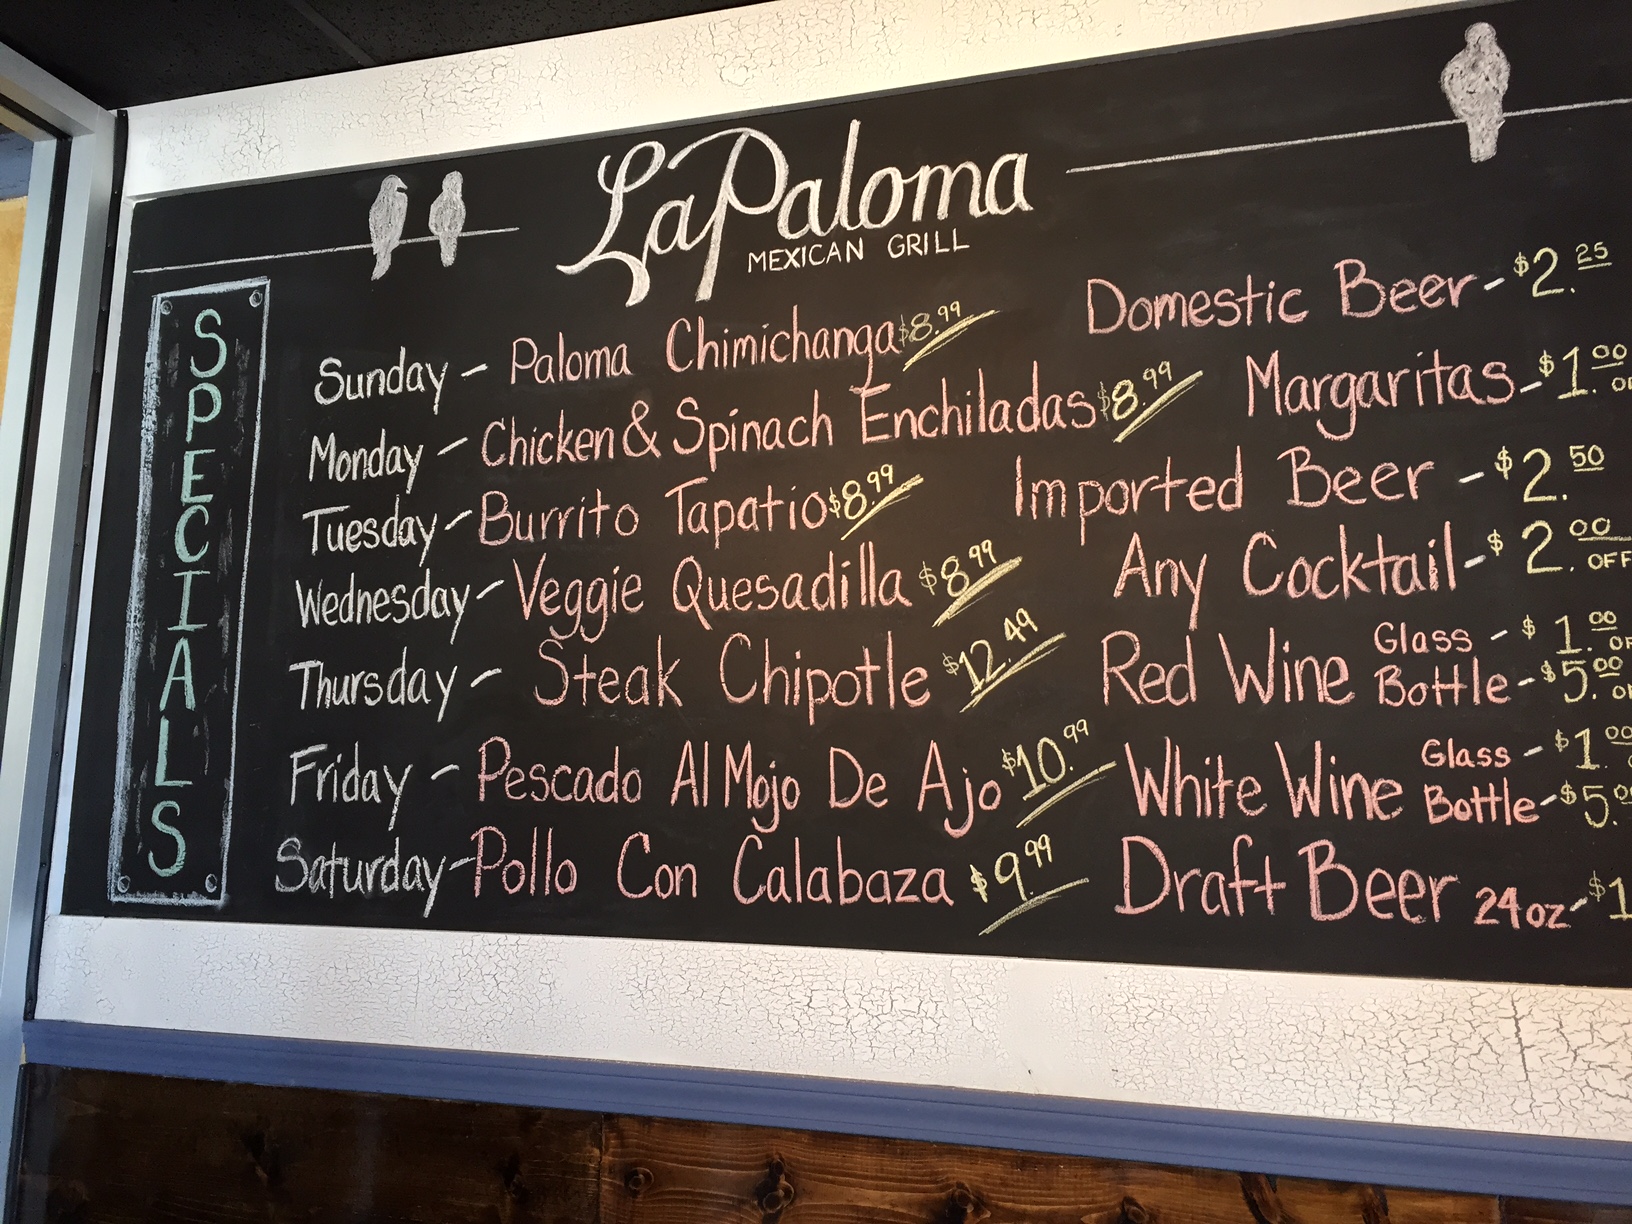 La Paloma
MEXICAN GRILL
SPECIALS
Sunday - Paloma Chimichanga $8.99
Domestic Beer - $2.25
Monday - Chicken & Spinach Enchiladas $8.99
Margaritas - $1.00
Tuesday - Burrito Tapatio $8.99
Imported Beer - $2.50
Wednesday - Veggie Quesadilla $8.99
Any Cocktail - $2.00 OFF
Thursday - Steak Chipotle $12.49
Red Wine Glass - $1.00
Bottle - $5.00
Friday - Pescado Al Mojo De Ajo $10.99
White Wine Glass - $1.00
Bottle - $5.
Saturday - Pollo Con Calabaza $9.99
Draft Beer 24oz - $1